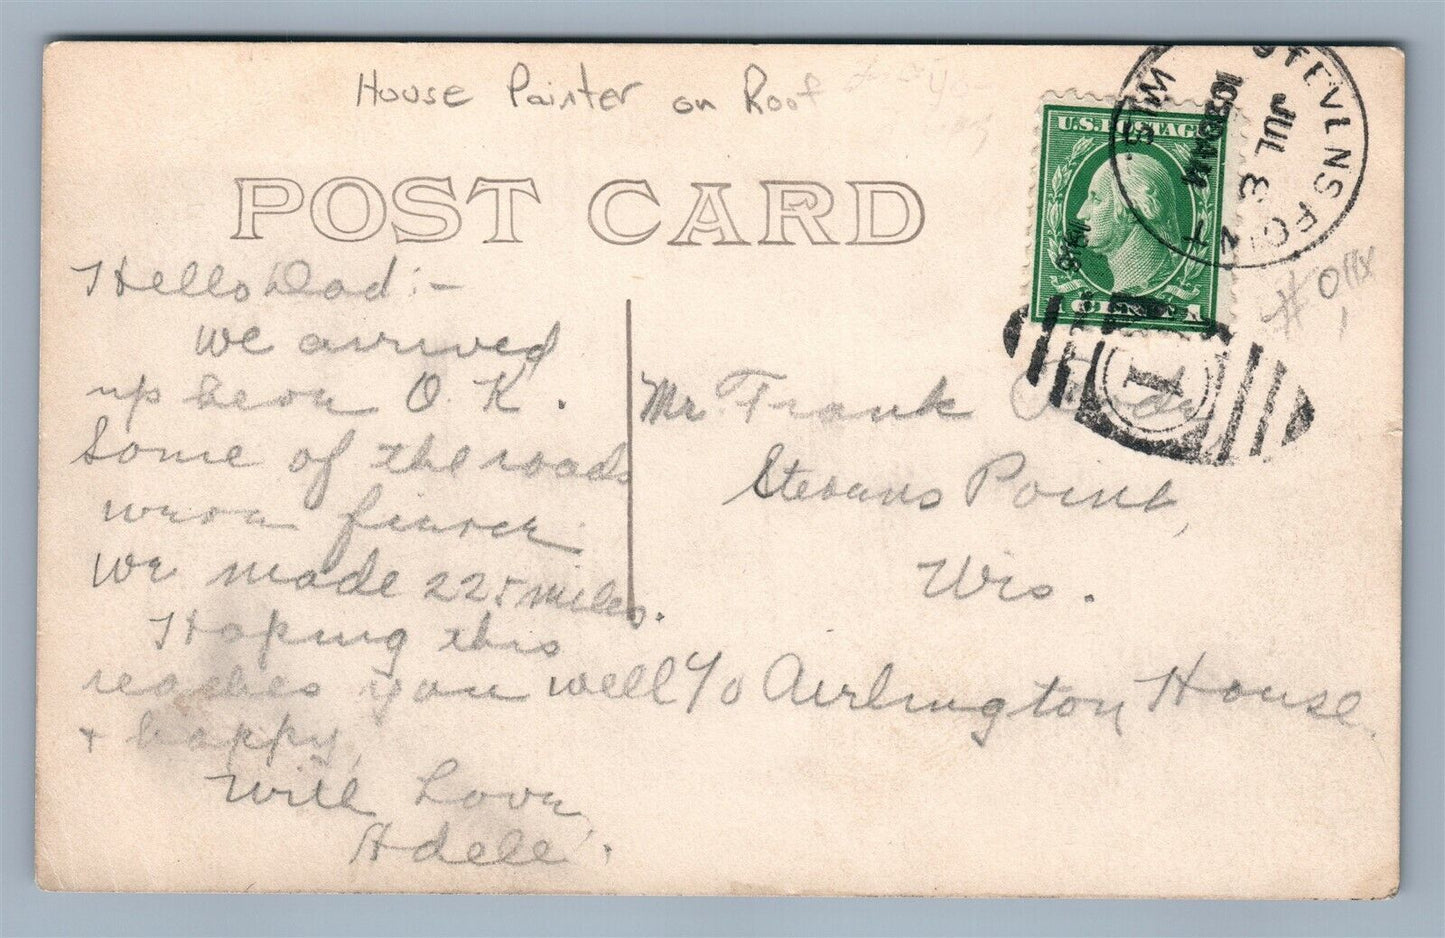 House Painter on Roof
POST CARD
U.S. POSTAGE
1 CENT 1
STEVENS POINT
WIS.
JUL 8
10 30 AM
1918
1
Hello Dad :-
we arrived
up here O. K.
Some of the roads
were fierce
We made 225 miles.
Hoping this
reaches you well
+ happy,
With Love,
Adele.
Mr. Frank
Stevens Point,
Wis.
c/o Airlington House.